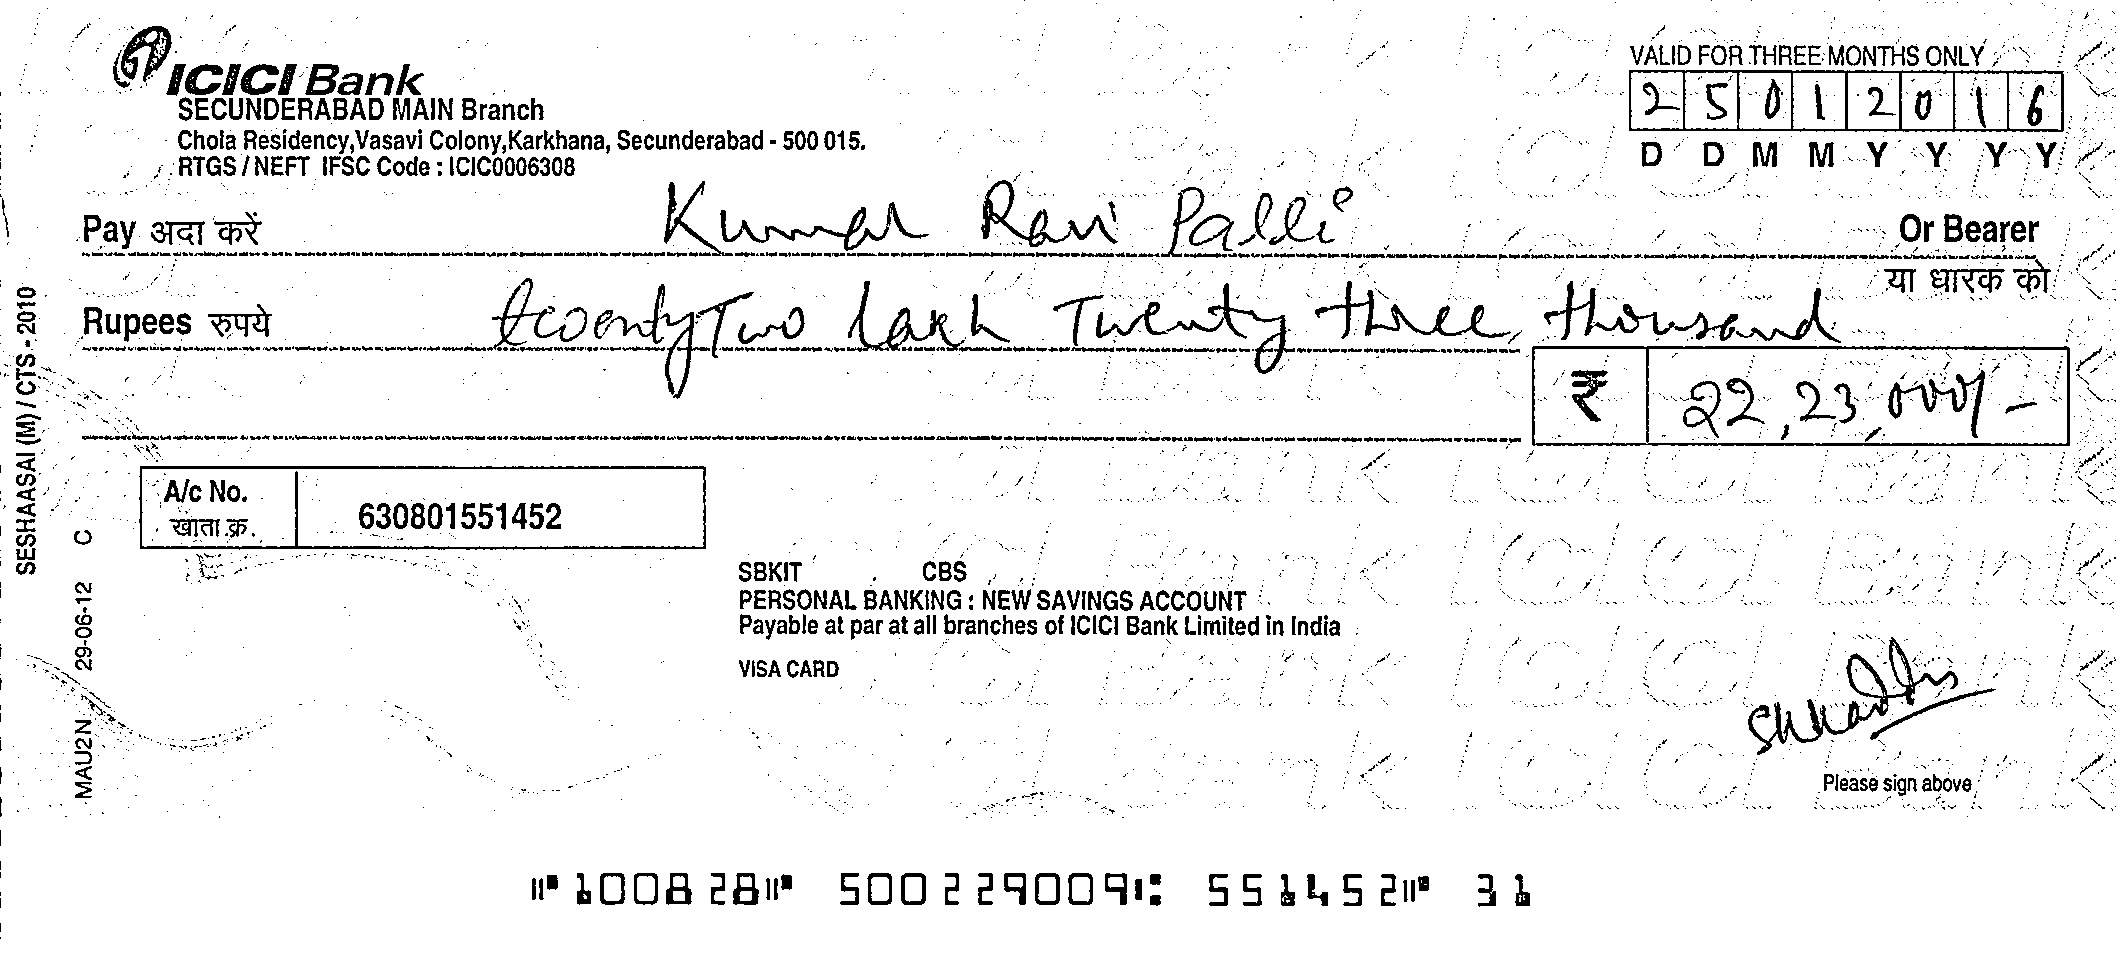 ICICI Bank
SECUNDERABAD MAIN Branch
Chola Residency,Vasavi Colony,Karkhana, Secunderabad - 500 015.
RTGS / NEFT IFSC Code : ICIC0006308
VALID FOR THREE MONTHS ONLY
2 5 0 1 2 0 1 6
D D M M Y Y Y Y
Pay अदा करें Kumar Ravi Palli Or Bearer
या धारक को
Rupees रुपये twenty Two lakh Twenty three thousand
₹ 22,23,000/-
A/c No. 630801551452
खाता क्र.
SBKIT CBS
PERSONAL BANKING : NEW SAVINGS ACCOUNT
Payable at par at all branches of ICICI Bank Limited in India
VISA CARD
Please sign above
SESHAASAI (M) / CTS - 2010
MAU2N 29-06-12 C
⑈100828⑈ 500229009⑆ 551452⑈ 31